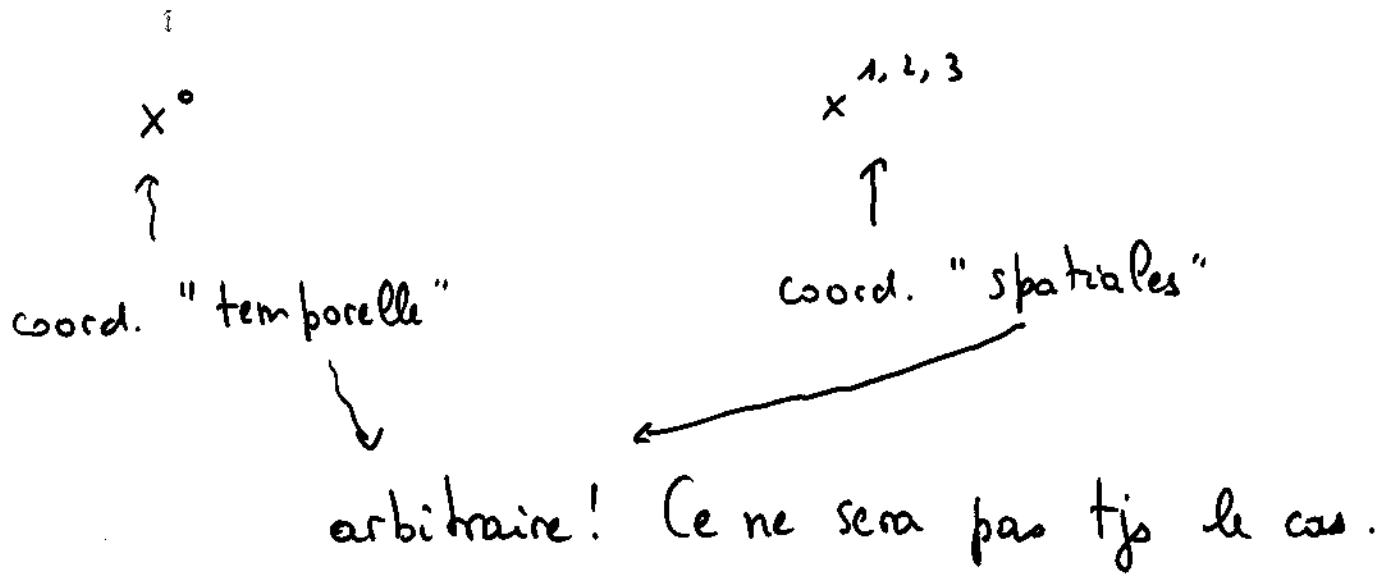 x⁰ x¹,²,³
coord. "temporelle" coord. "spatiales"
arbitraire! Ce ne sera pas tjs le cas.